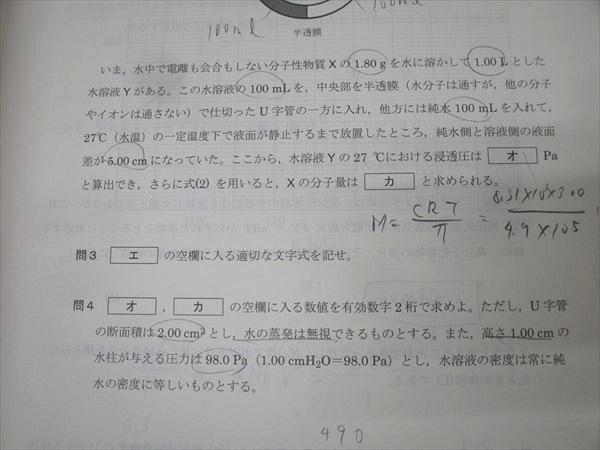 100ml
100ml
半透膜
いま，水中で電離も会合もしない分子性物質 X の 1.80 g を水に溶かして 1.00 L とした
水溶液 Y がある。この水溶液の 100 mL を，中央部を半透膜（水分子は通すが，他の分子
やイオンは通さない）で仕切った U 字管の一方に入れ，他方には純水 100 mL を入れて，
27℃（水温）の一定温度下で液面が静止するまで放置したところ，純水側と溶液側の液面
差が 5.00 cm になっていた。ここから，水溶液 Y の 27 ℃における浸透圧は オ Pa
と算出でき，さらに式(2) を用いると，X の分子量は カ と求められる。
M= cRT/π = 8.31×10³×300/4.9×105
問3 エ の空欄に入る適切な文字式を記せ。
問4 オ ， カ の空欄に入る数値を有効数字 2 桁で求めよ。ただし，U 字管
の断面積は 2.00 cm² とし，水の蒸発は無視できるものとする。また，高さ 1.00 cm の
水柱が与える圧力は 98.0 Pa（1.00 cmH₂O＝98.0 Pa）とし，水溶液の密度は常に純
水の密度に等しいものとする。
490